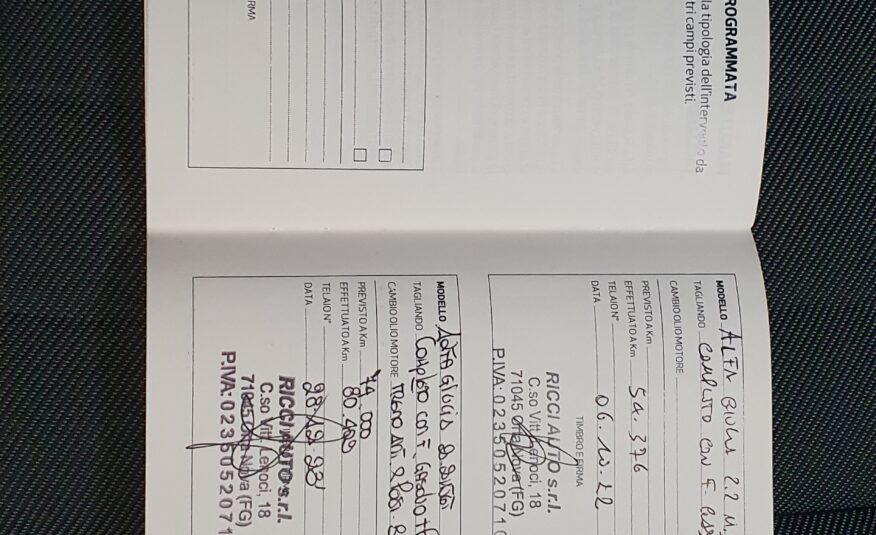 ROGRAMMATA
la tipologia dell'intervento da
tri campi previsti.
RMA
MODELLO ALFA GIULIA 2.2 M
TAGLIANDO COMPLETO CON F.
CAMBIO OLIO MOTORE
PREVISTO A Km
EFFETTUATO A Km 54.376
TELAIO N°
DATA 06.10.22
TIMBRO E FIRMA
RICCI AUTO s.r.l.
C.so Vitt. Lenoci, 18
71045 Orta Nova (FG)
P.IVA: 0235052071
MODELLO ALFA GIULIA 2.2
TAGLIANDO Completo con F. Gasolio +
CAMBIO OLIO MOTORE
PREVISTO A Km 74.000
EFFETTUATO A Km 80.400
TELAIO N°
DATA 28.12.23
RICCI AUTO s.r.l.
C.so Vitt. Lenoci, 18
71045 Orta Nova (FG)
P.IVA: 0235052071